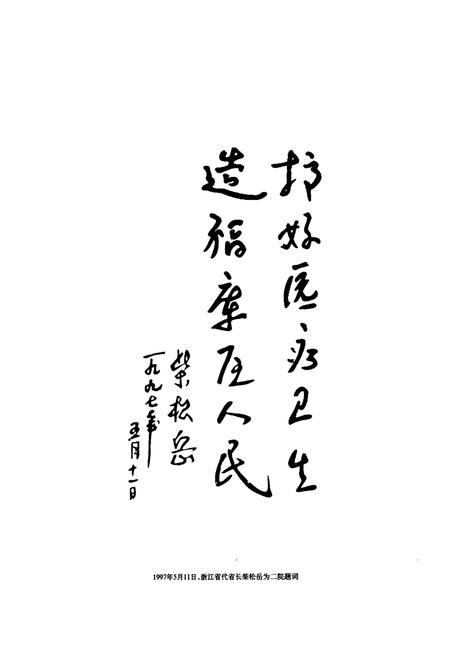 搞好医疗卫生
造福库区人民
柴松岳
一九九七年
五月十一日
1997年5月11日，浙江省代省长柴松岳为二院题词